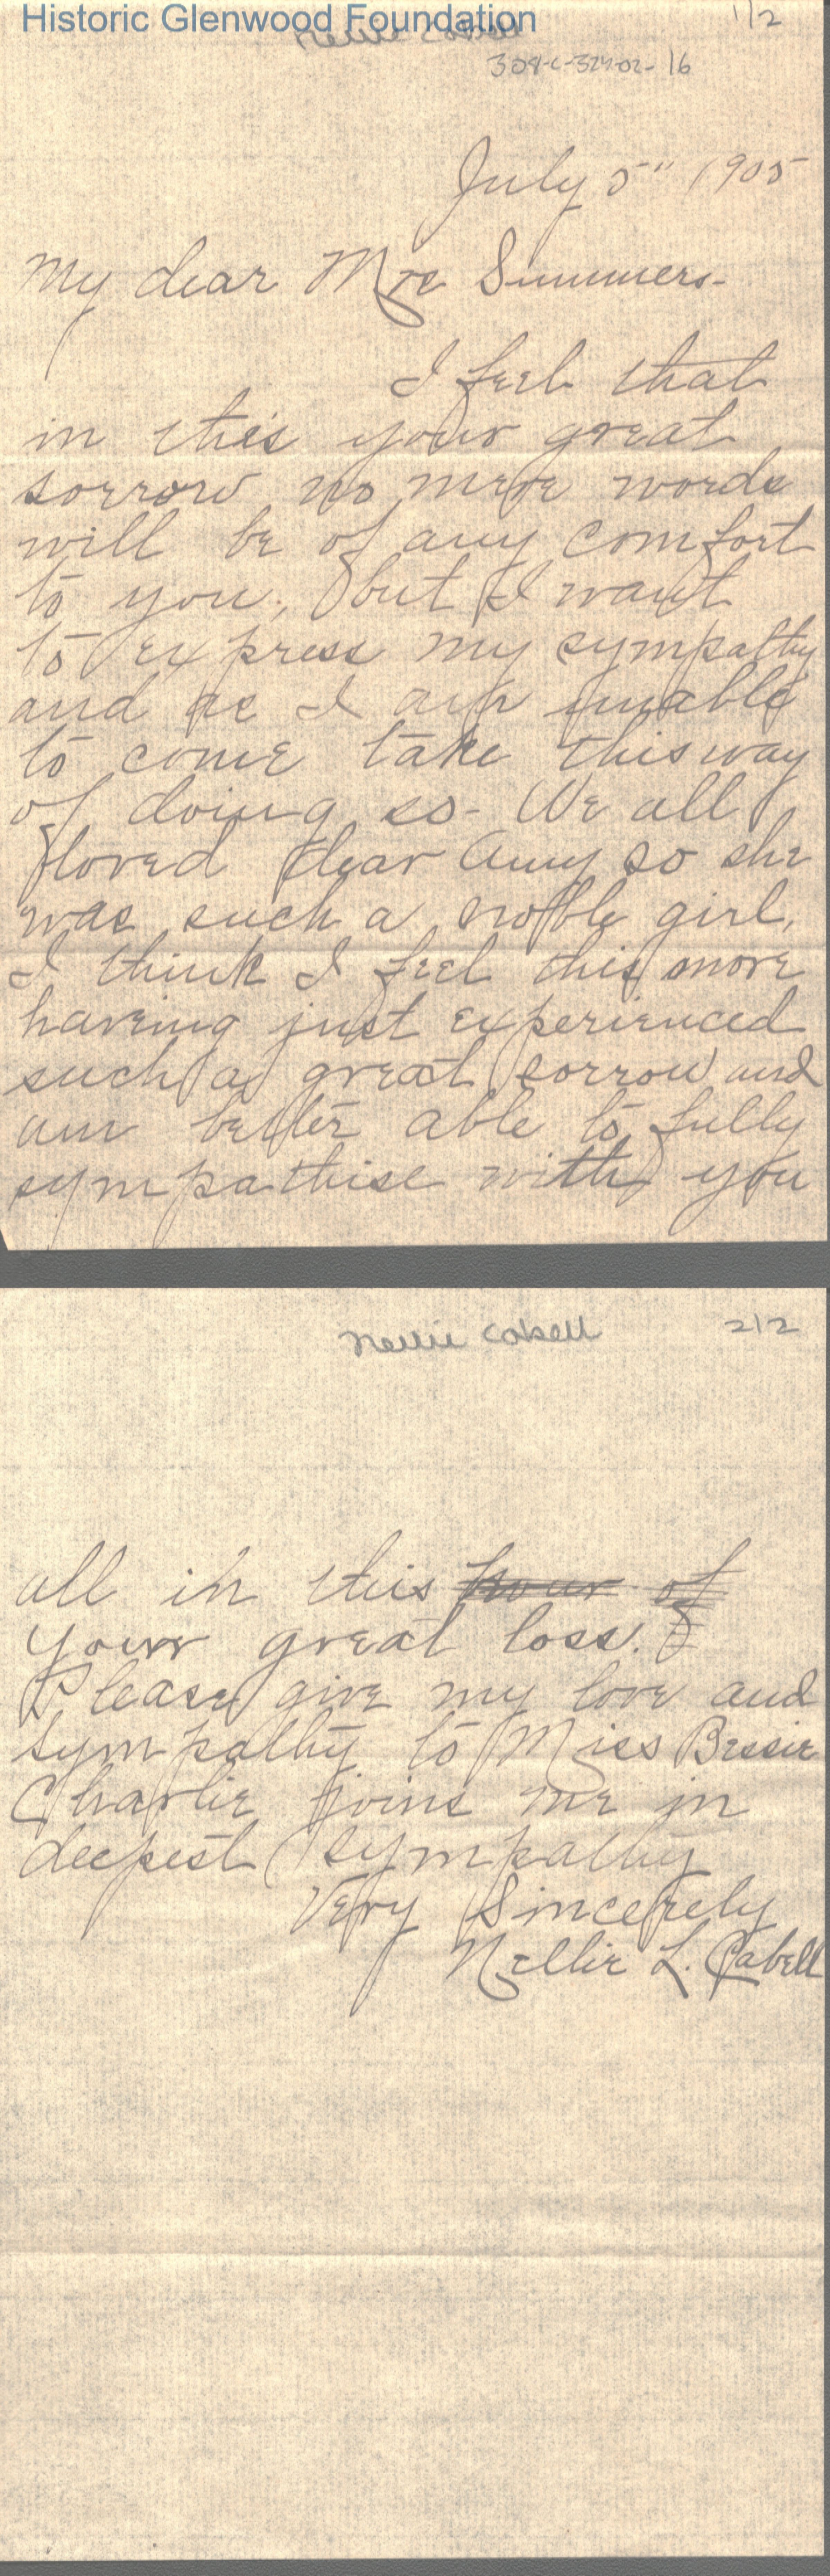 Historic Glenwood Foundation
1/2
Nellie Cabell
308-C-324-02-16
July 5" 1905
My dear Mrs Summers-
I feel that
in this your great
sorrow no mere words
will be of any comfort
to you, but I want
to express my sympathy
and as I am unable
to come take this way
of doing so- We all
loved dear Amy so she
was such a noble girl,
I think I feel this more
having just experienced
such a great sorrow and
am better able to fully
sympathise with you
Nellie Cabell
2/2
all in this hour of
your great loss.
Please give my love and
sympathy to Miss Bessie
Charlie joins me in
deepest sympathy
Very Sincerely
Nellie L. Cabell